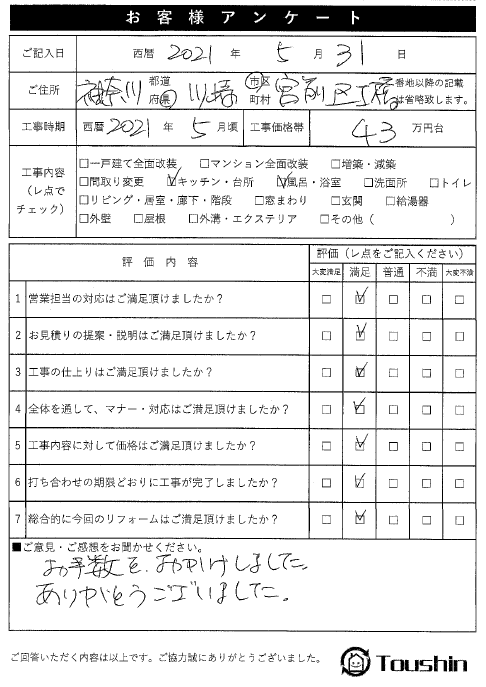 お客様アンケート
ご記入日 西暦 2021 年 5 月 31 日
ご住所 神奈川 都道府県 川崎 市区町村 宮前区 番地以降の記載は省略致します。
工事時期 西暦 2021 年 5 月頃 工事価格帯 43 万円台
工事内容（レ点でチェック）
□一戸建て全面改装 □マンション全面改装 □増築・減築
□間取り変更 ☑キッチン・台所 ☑風呂・浴室 □洗面所 □トイレ
□リビング・居室・廊下・階段 □窓まわり □玄関 □給湯器
□外壁 □屋根 □外溝・エクステリア □その他（ ）
評価内容 評価（レ点をご記入ください）
大変満足 満足 普通 不満 大変不満
1 営業担当の対応はご満足頂けましたか？ □ ☑ □ □ □
2 お見積りの提案・説明はご満足頂けましたか？ □ ☑ □ □ □
3 工事の仕上りはご満足頂けましたか？ □ ☑ □ □ □
4 全体を通して、マナー・対応はご満足頂けましたか？ □ ☑ □ □ □
5 工事内容に対して価格はご満足頂けましたか？ □ ☑ □ □ □
6 打ち合わせの期限どおりに工事が完了しましたか？ □ ☑ □ □ □
7 総合的に今回のリフォームはご満足頂けましたか？ □ ☑ □ □ □
■ご意見・ご感想をお聞かせください。
お手数を、おかけしました。
ありがとうございました。
ご回答いただく内容は以上です。ご協力誠にありがとうございました。
Toushin